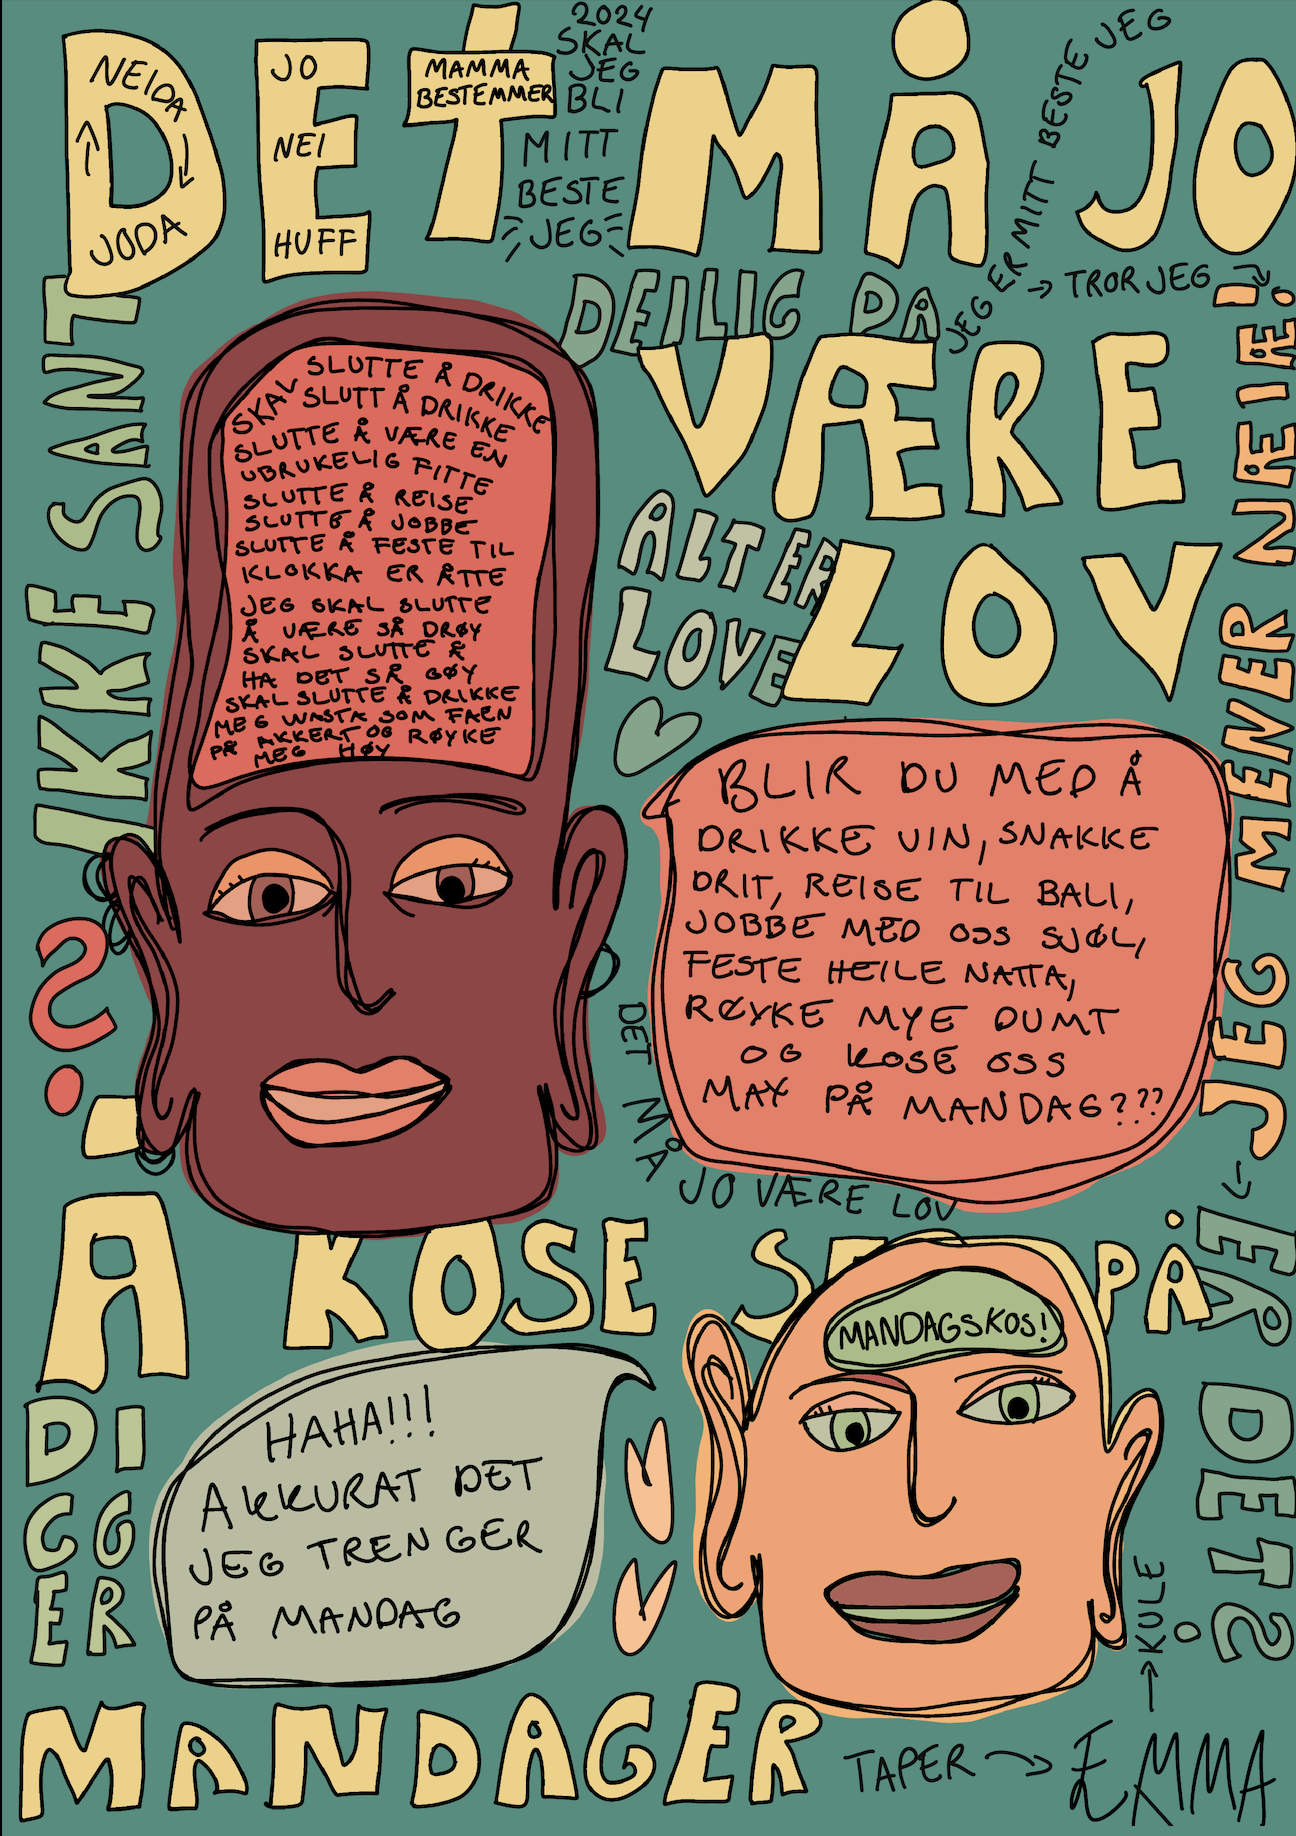 DET MÅ JO
NEIDA
JODA
JO
NEI
HUFF
MAMMA
BESTEMMER
2024
SKAL
JEG
BLI
MITT
BESTE
JEG
JEG ER MITT BESTE JEG
→ TROR JEG
DEILIG DA
VÆRE
ALT ER
LOVE
LOV
IKKE SANT
?
JEG MENER NÆIÆ!
SKAL SLUTTE Å DRIKKE
SLUTT Å DRIKKE
SLUTTE Å VÆRE EN
UBRUKELIG FITTE
SLUTTE Å REISE
SLUTTE Å JOBBE
SLUTTE Å FESTE TIL
KLOKKA ER ÅTTE
JEG SKAL SLUTTE
Å VÆRE SÅ DRØY
SKAL SLUTTE Å
HA DET SÅ GØY
SKAL SLUTTE Å DRIKKE
MEG WASTA SOM FAEN
PÅ AKKERT OG RØYKE
MEG HØY
BLIR DU MED Å
DRIKKE VIN, SNAKKE
DRIT, REISE TIL BALI,
JOBBE MED OSS SJØL,
FESTE HEILE NATTA,
RØYKE MYE DUMT
OG KOSE OSS
MAX PÅ MANDAG???
DET MÅ JO VÆRE LOV
Å KOSE SEG PÅ
ER DET?
MANDAGSKOS!
HAHA!!!
AKKURAT DET
JEG TRENGER
PÅ MANDAG
DIGGER
MANDAGER
TAPER →
EMMA
→ KULE